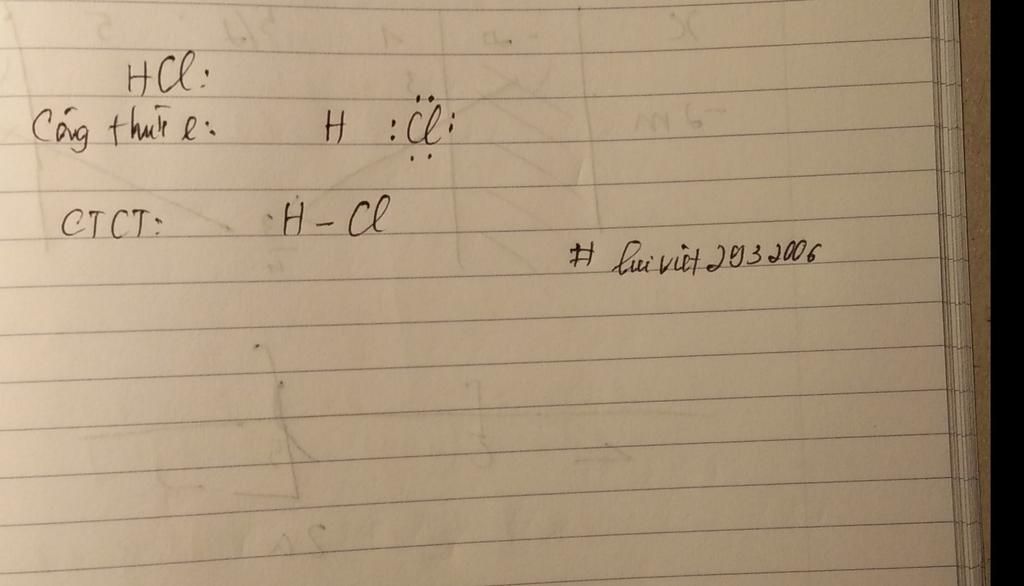 HCl:
Công thức e:   H :C̤̈l:
CTCT:   H – Cl
# buiviet2932006